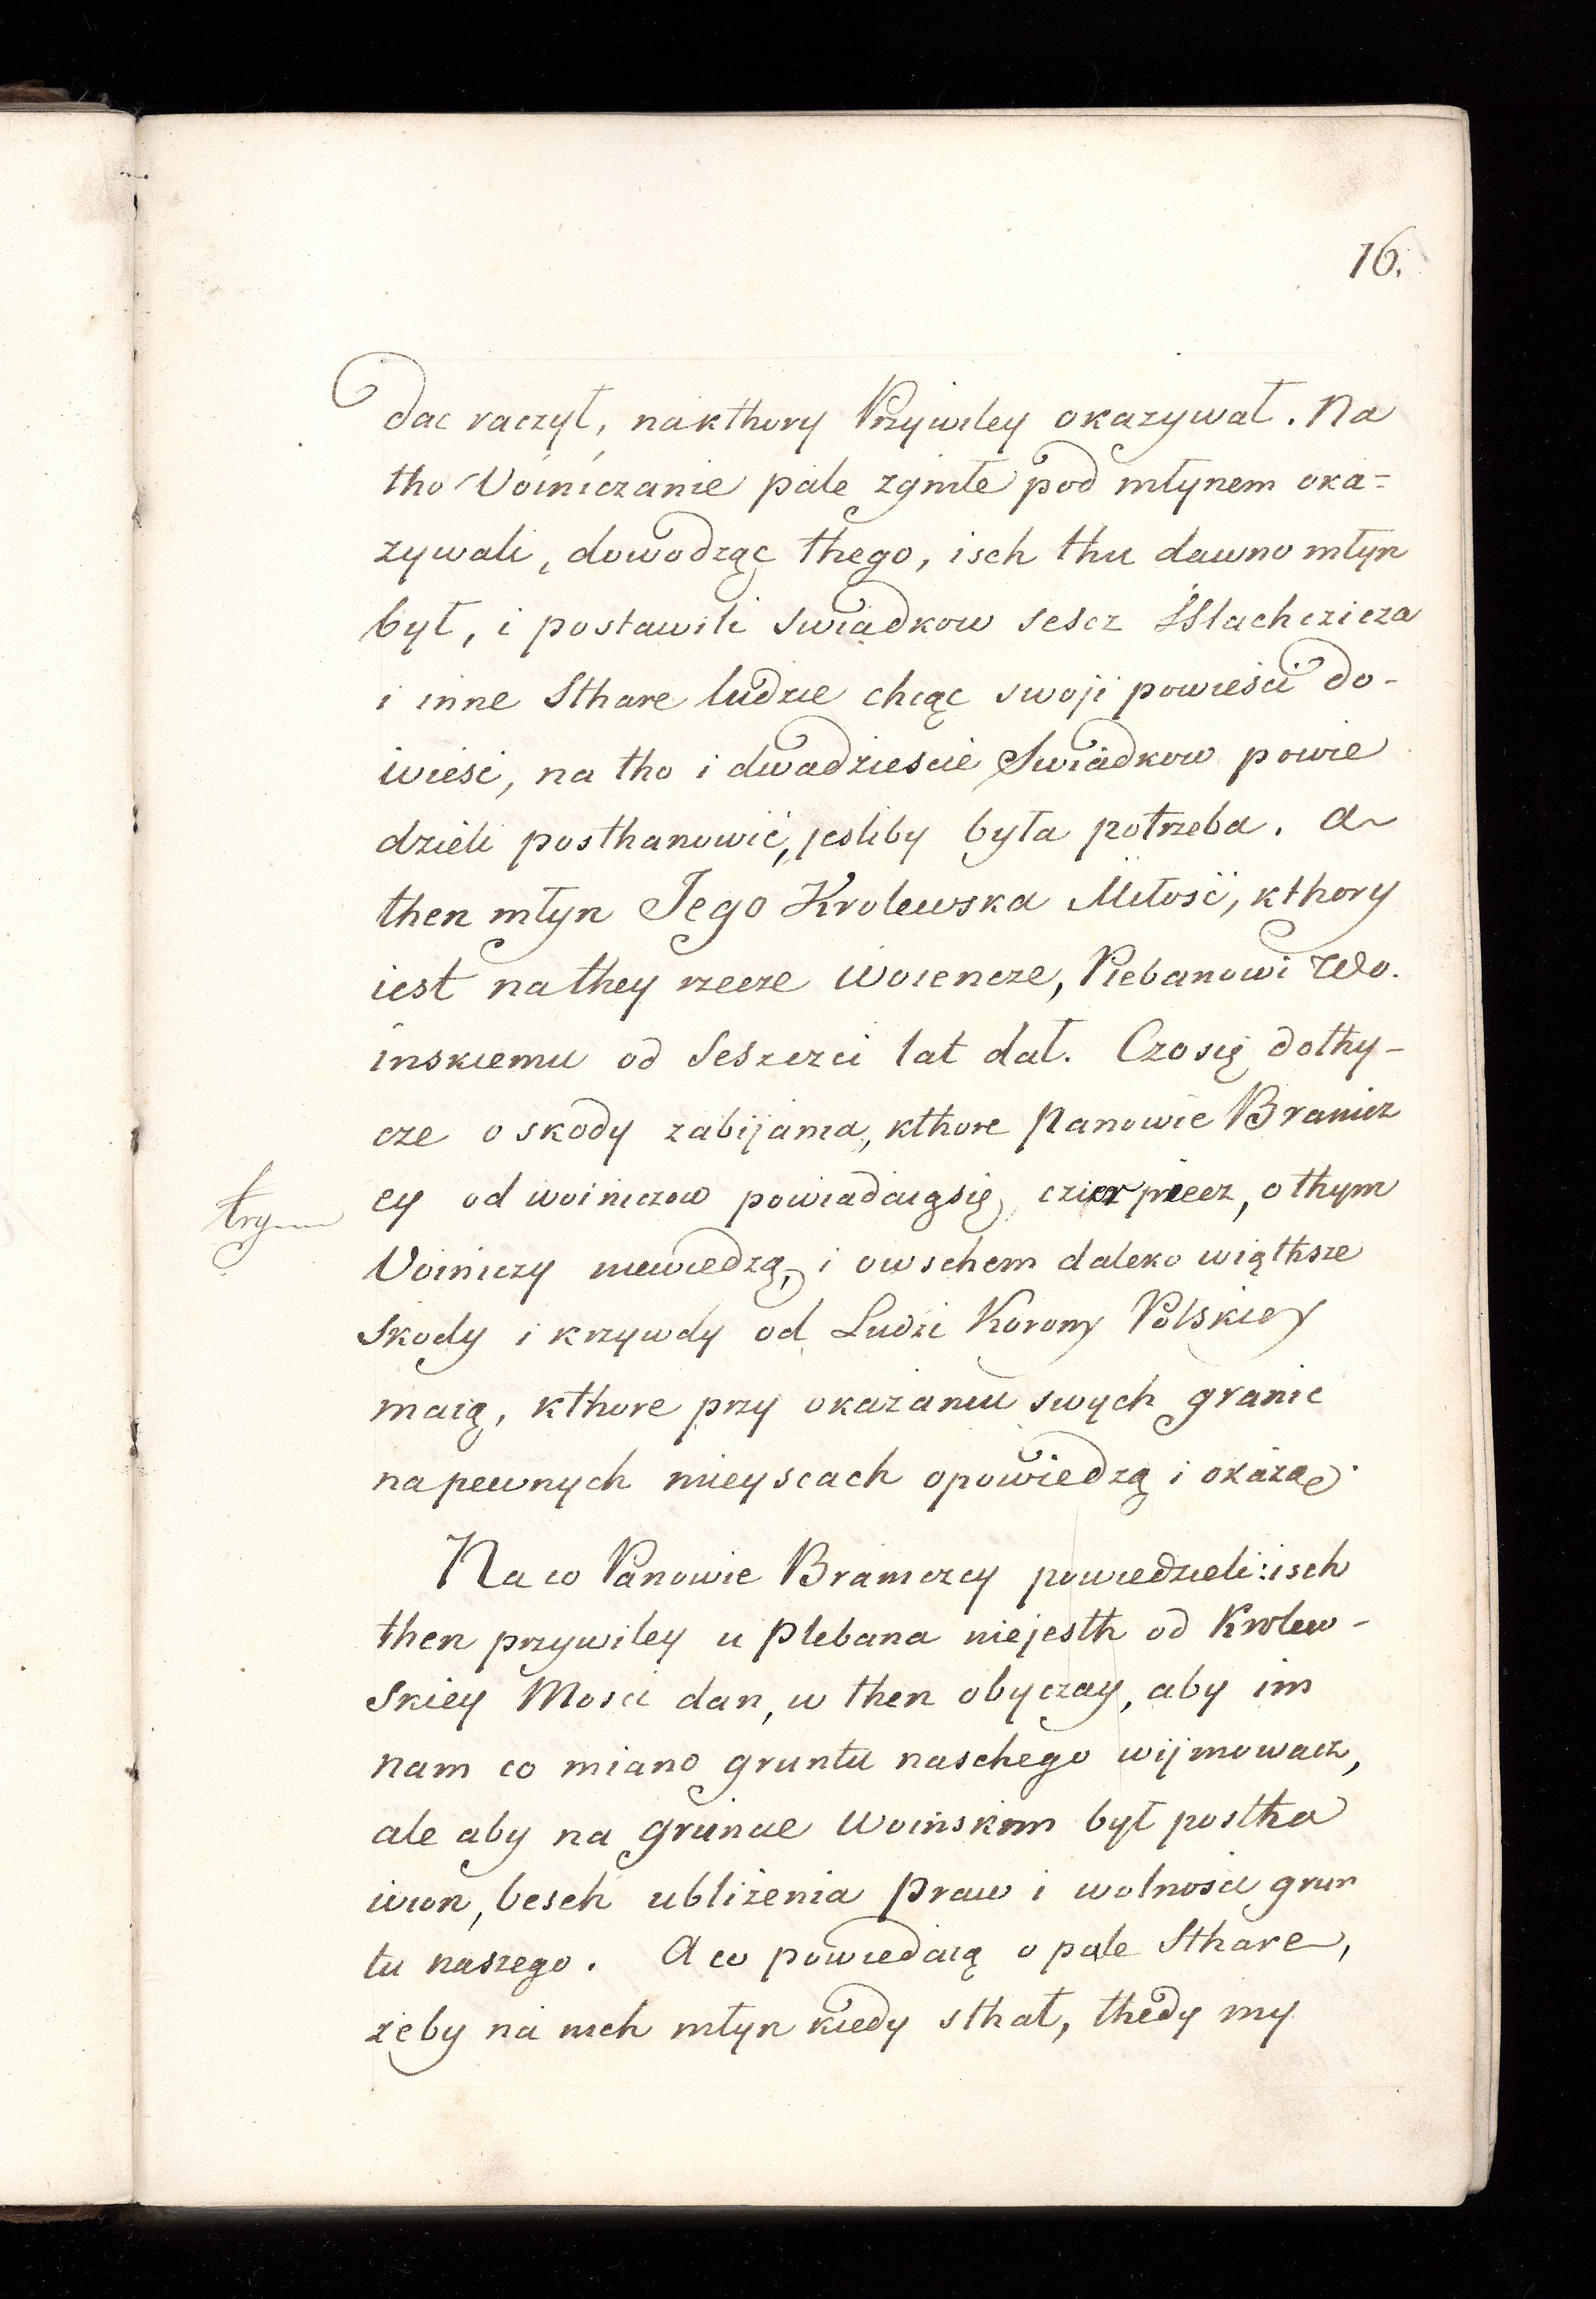 16.
dac raczył, nakthory Przywiley okazywał. Na
tho Voiniczanie pale zgniłe pod młynem oka=
zywali, dowodząc thego, isch thu dawno młyn
był, i postawili swiadkow sescz Sslachczicza
i inne Sthare ludzie chcąc swoji powieści do-
wieść, na tho i dwadzieście Swiadkow powie
dzieli posthanowić, jesliby była potrzeba. a
then młyn Jego Krolewska Miłość, kthory
iest nathey rzecze Woiencze, Plebanowi Wo.
inskiemu od Seszczci lat dał. Czosię dothy-
cze o skody zabijania, kthore Panowie Branicz
cy od woiniczow powiadaiąsię czierpiecz, othym
Voiniczy niewiedzą, i owschem daleko wiąthsze
skody i krzywdy od Ludzi Korony Polskiey
maią, kthore przy okazaniu swych granic
napewnych mieyscach opowiedzą i okażą.
Naco Panowie Braniczcy powiedzieli: isch
then przywiley u plebana niejesth od Krolew-
skiey Mosci dan, w then obyczay, aby im
nam co miano gruntu naschego wijmowacz,
ale aby na gruncie Woinskim był postha
wion, besch ubliżenia praw i wolności grun
tu naszego. A co powiedaią o pale Sthare,
żeby na nich młyn kiedy sthał, thedy my